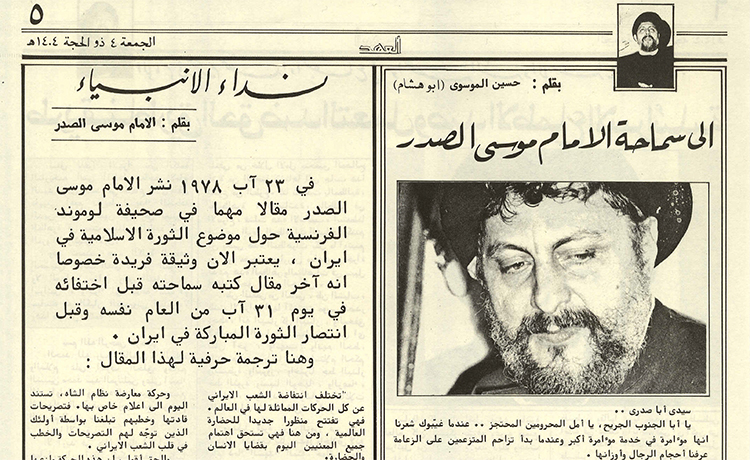 ٥
العهد
الجمعة ٤ ذو الحجة ١٤٠٤هـ
بقلم : حسين الموسوي (ابو هشام)
الى سماحة الامام موسى الصدر
سيدي أبا صدري ..
يا أبا الجنوب الجريح، يا أمل المحرومين المحتجز .. عندما غيّبوك شعرنا
انها مؤامرة في خدمة مؤامرة أكبر وعندما بدأ تزاحم المتزعمين على الزعامة
عرفنا أحجام الرجال وأوزانها .
نداء الانبياء
بقلم : الامام موسى الصدر
في ٢٣ آب ١٩٧٨ نشر الامام موسى
الصدر مقالا مهما في صحيفة لوموند
الفرنسية حول موضوع الثورة الاسلامية في
ايران ، يعتبر الان وثيقة فريدة خصوصا
انه آخر مقال كتبه سماحته قبل اختفائه
في يوم ٣١ آب من العام نفسه وقبل
انتصار الثورة المباركة في ايران .
وهنا ترجمة حرفية لهذا المقال :
"تختلف انتفاضة الشعب الايراني
عن كل الحركات المماثلة لها في العالم .
فهي تفتتح منظورا جديدا للحضارة
العالمية . ومن هنا فهي تستحق اهتمام
جميع المعنيين اليوم بقضايا الانسان
والحضارة.
وحركة معارضة نظام الشاه، تستند
اليوم الى اعلام خاص بها. فتصريحات
قادتها وخطبهم تبلغنا بواسطة أولئك
الذين توجّه لهم التصريحات والخطب
في قلب الشعب الايراني .